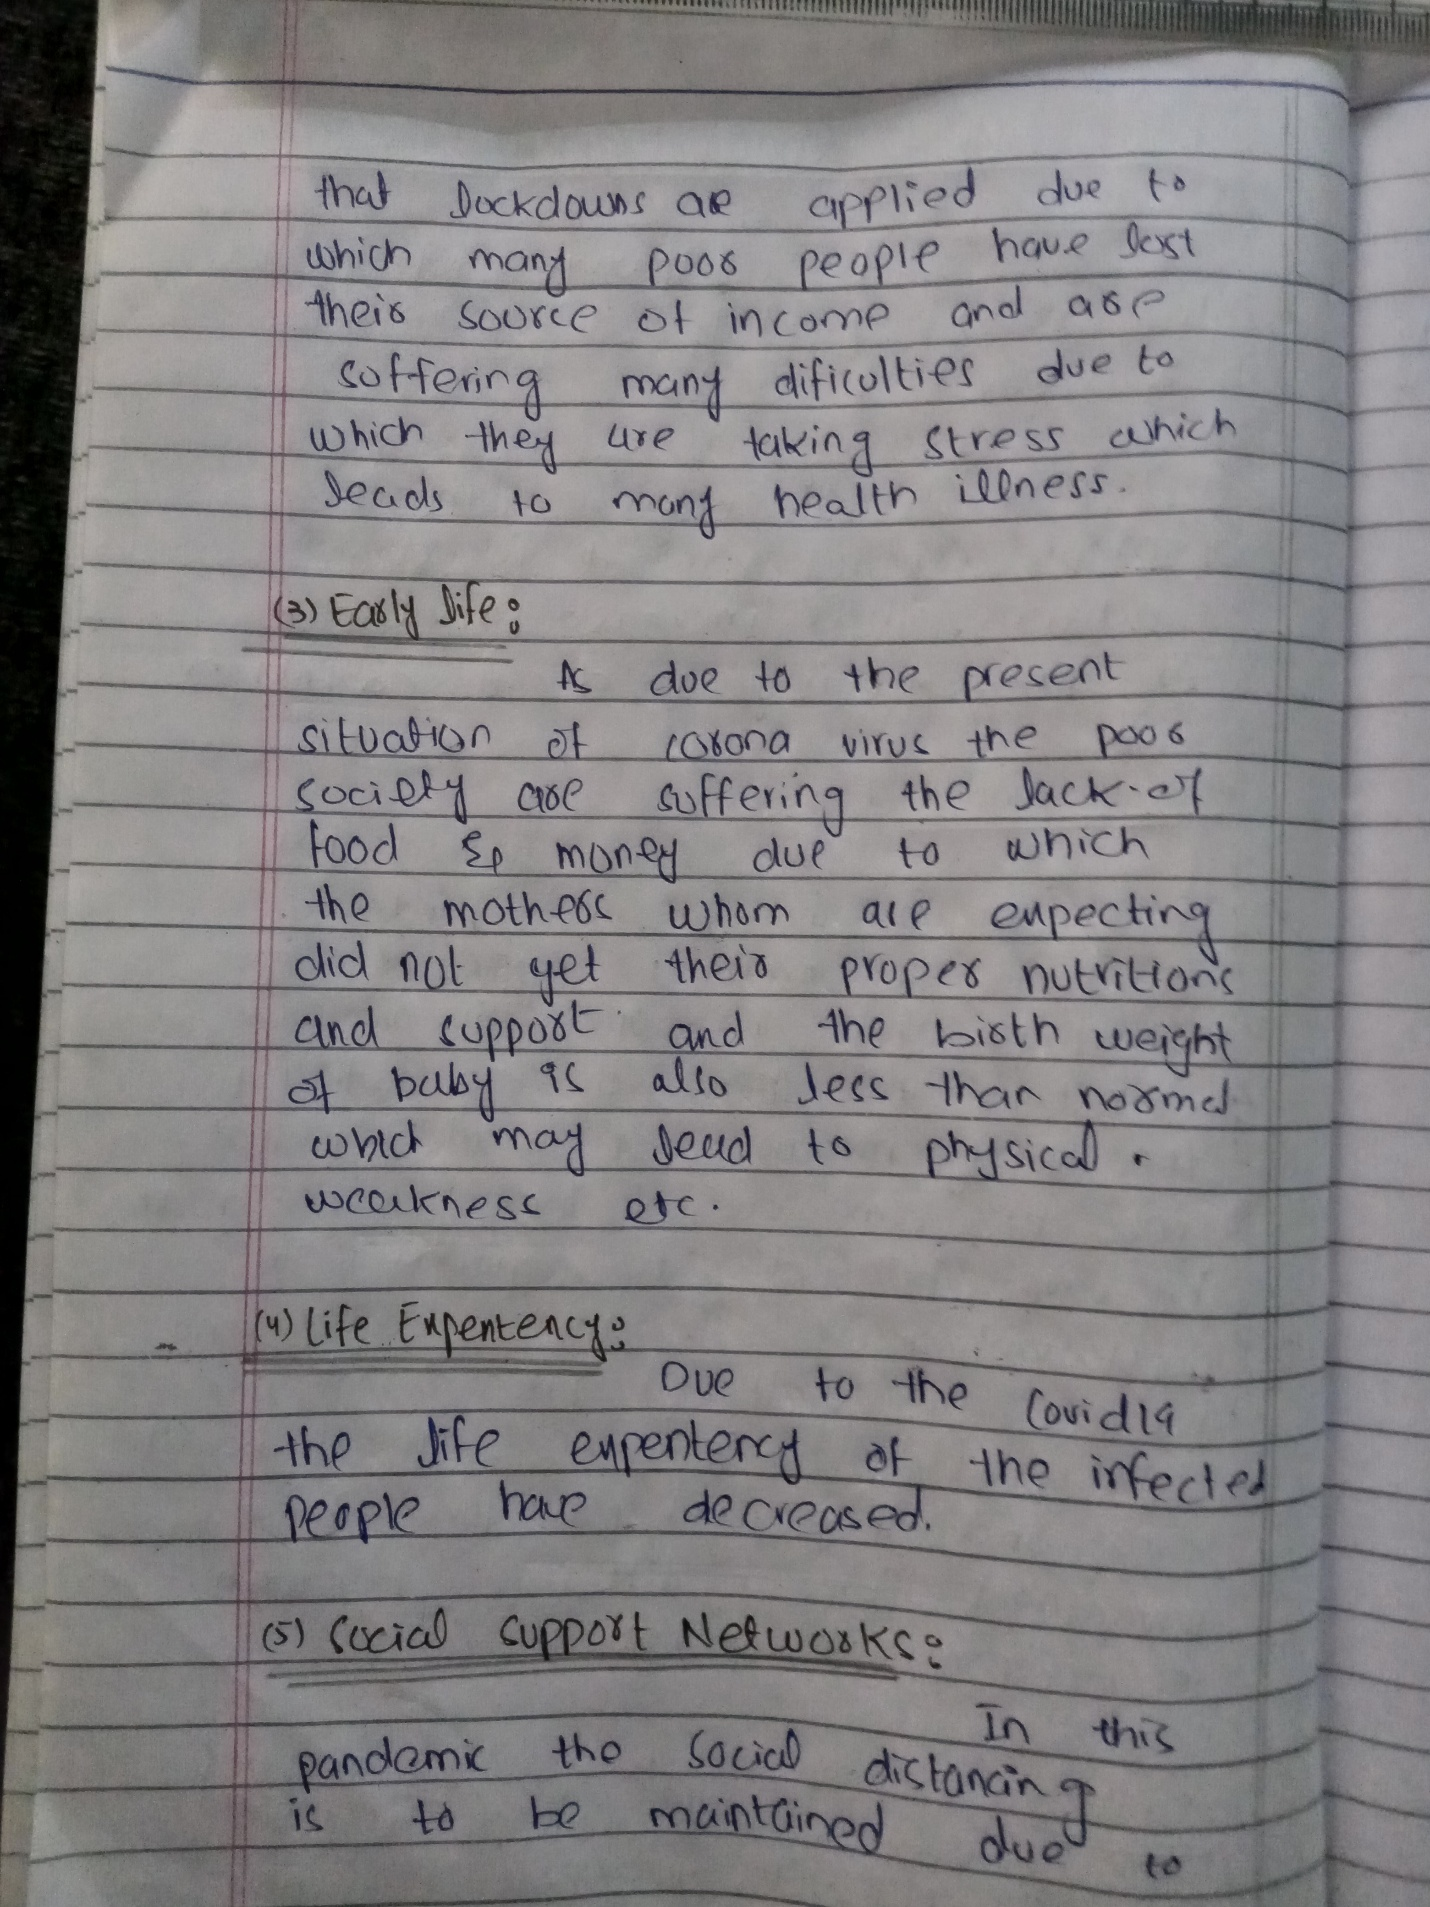 that lockdowns are applied due to
which many poor people have lost
their source of income and are
suffering many dificulties due to
which they are taking stress which
leads to many health illness.
(3) Early life:
As due to the present
situation of corona virus the poor
society are suffering the lack of
food & money due to which
the mothers whom are expecting
did not get their proper nutritions
and support and the birth weight
of baby is also less than normal
which may lead to physical
weakness etc.
(4) Life Expentency:
Due to the Covid19
the life expentency of the infected
people have decreased.
(5) Social Support Networks:
In this
pandemic the social distancing
is to be maintained due to